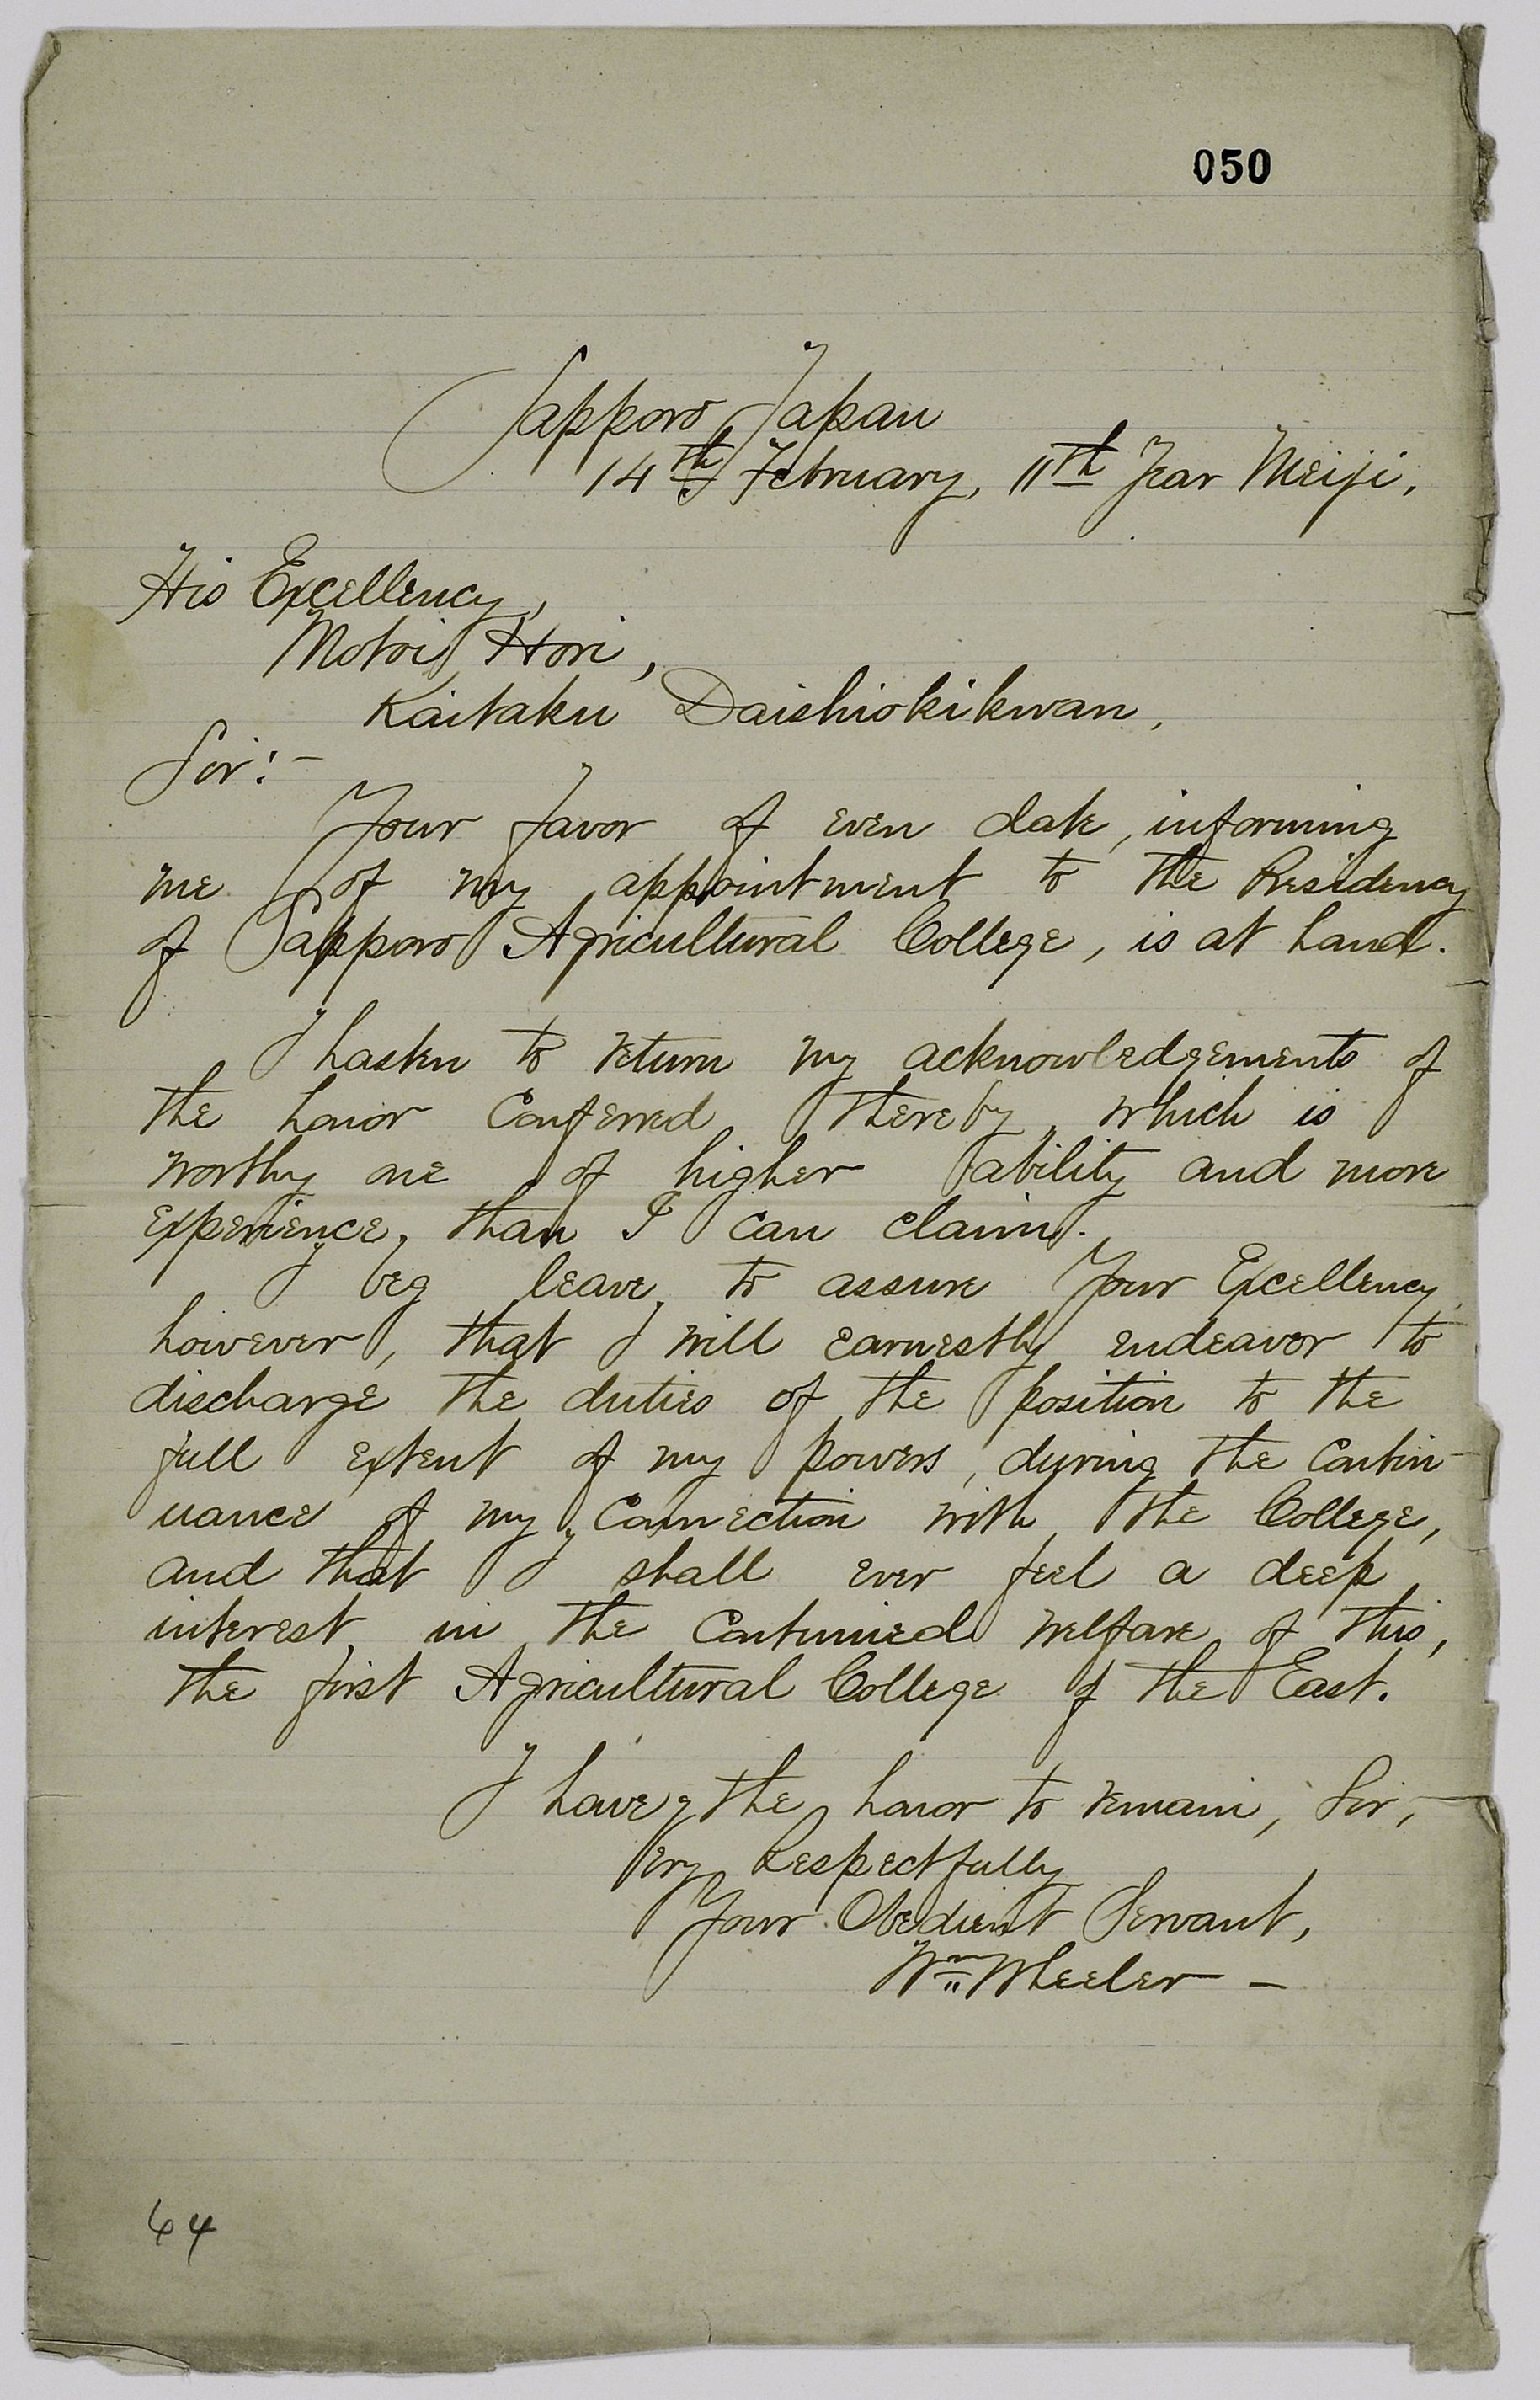 050
Sapporo, Japan
14th February, 11th Year Meiji.
His Excellency,
Motoi Hori,
Kaitaku Daishiokikwan,
Sir:-
Your favor of even date, informing
me of my appointment to the Presidency
of Sapporo Agricultural College, is at hand.
I hasten to return my acknowledgements of
the honor conferred thereby, which is
worthy one of higher ability and more
experience, than I can claim.
I beg leave, to assure Your Excellency,
however, that I will earnestly endeavor to
discharge the duties of the position to the
full extent of my powers, during the contin-
uance of my connection with the College,
and that I shall ever feel a deep
interest in the continued welfare of this,
the first Agricultural College of the East.
I have the honor to remain, Sir,
Very Respectfully
Your Obedient Servant,
Wm Wheeler -
64